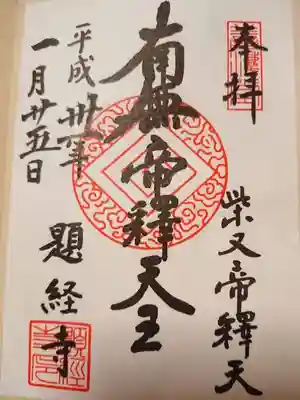 奉拝
柴又帝釋天
南無帝釋天王
平成卅一年
一月廿五日
題経寺